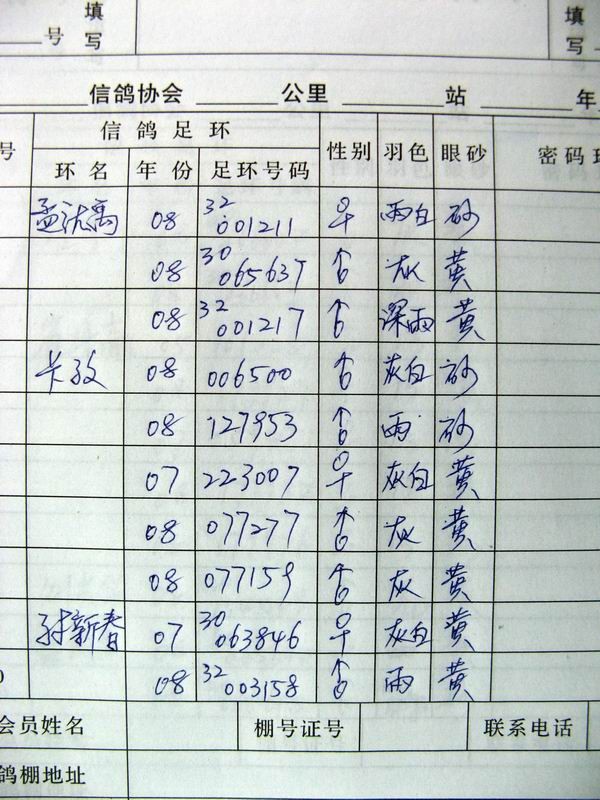 号 填写 填写
信鸽协会 公里 站 年
号 信鸽足环 性别 羽色 眼砂 密码环
环名 年份 足环号码
08 32 001211 ♀ 雨白 砂
08 30 065637 ♂ 灰 黄
08 32 001217 ♂ 深雨 黄
08 006500 ♂ 灰白 砂
08 127953 ♂ 雨 砂
07 223007 ♀ 灰白 黄
08 077277 ♂ 灰 黄
08 077159 ♂ 灰 黄
新春 07 30 063846 ♀ 灰白 黄
08 32 003158 ♂ 雨 黄
会员姓名 棚号证号 联系电话
鸽棚地址